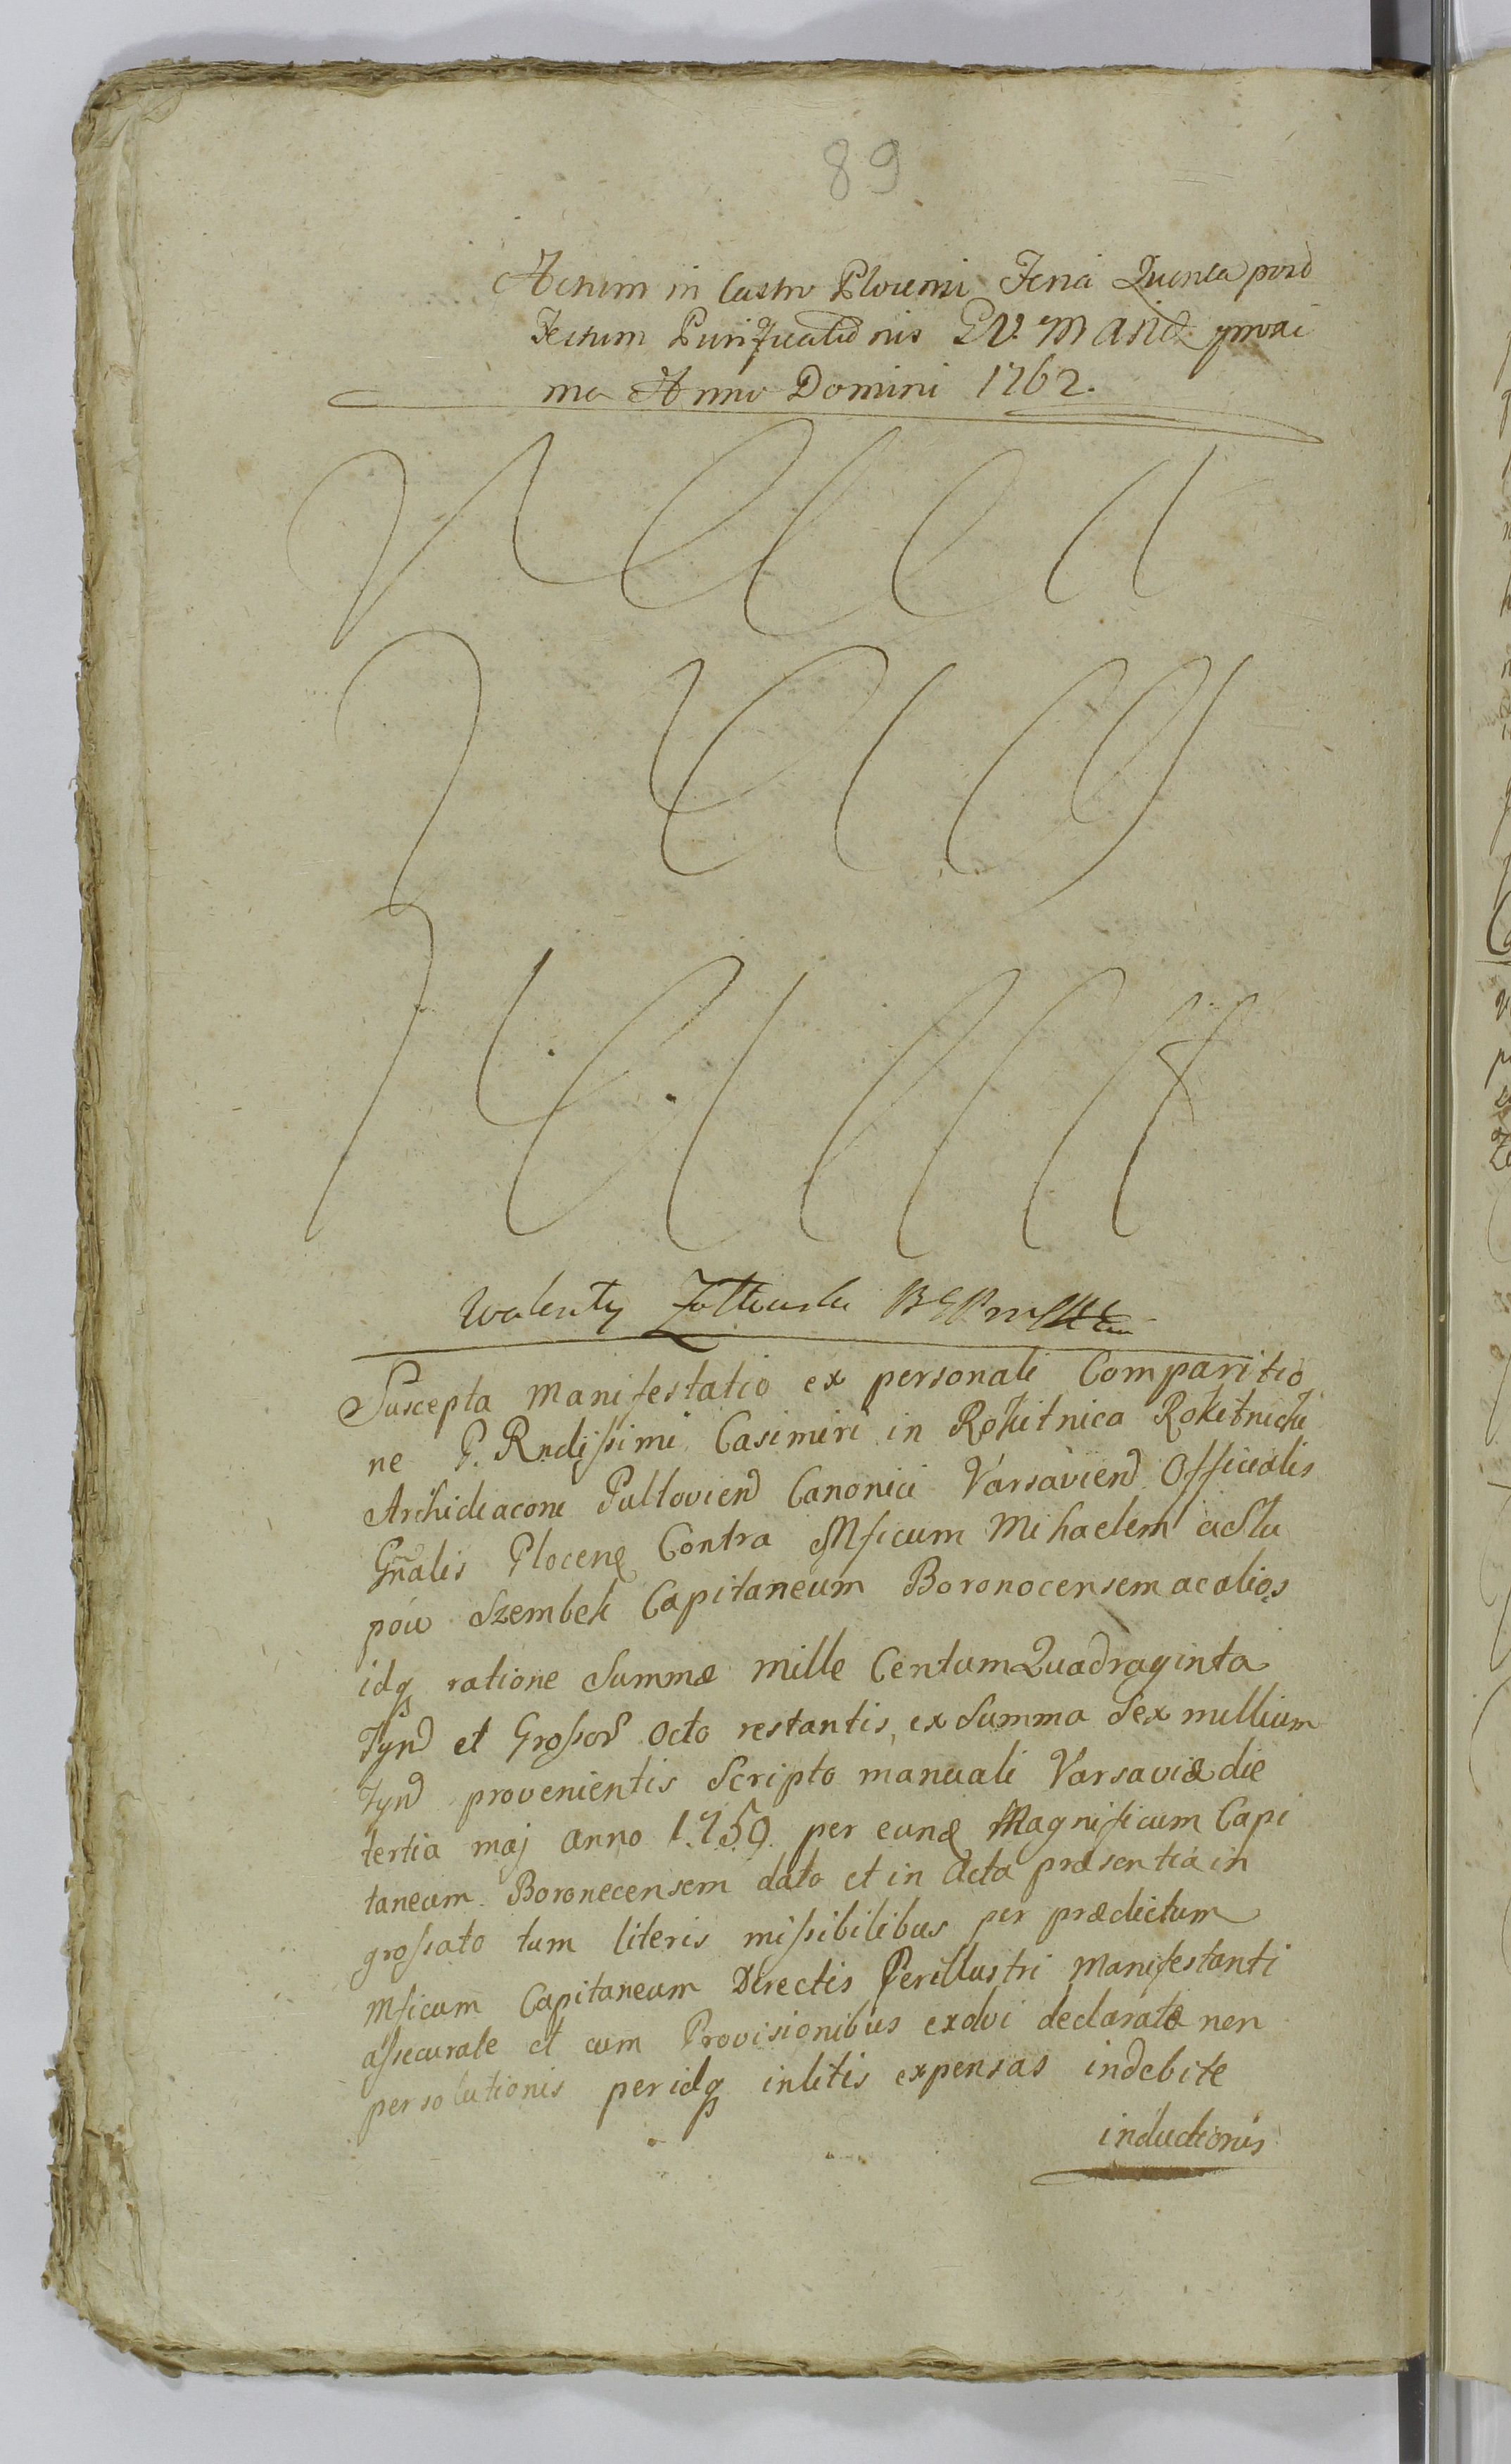 89
Actum in Castro Plocensi Feria Quinta post
Festum Purificationis B.V. Mariæ proxi
ma Anno Domini 1762.
Walenty
Suscepta Manifestatio ex personali Comparitio
ne P. Rndissimi Casimiri in Rokitnica Rokitnicki
Archidiaconi Pultovien Canonici Varsavien Officialis
Gñalis Plocen Contra Mficum Mihaelem a Słu
pów Szembek Capitaneum Boronocensem ac alios
idq ratione Summæ mille Centum Quadraginta
Tyn et Grossor octo restantis, ex Summa Sex millium
Tyn provenientis Scripto manuali Varsaviæ die
tertia maj anno 1.759. per eund Magnificum Capi
taneum Boronecensem dato et in Acta præsentia in
grossato tum literis missibilibus per prædictum
Mficum Capitaneum Directis Perillustri Manifestanti
assecuratæ et cum Provisionibus exolvi declaratæ non
persolutionis per idq in litis expensas indebite
inductionis